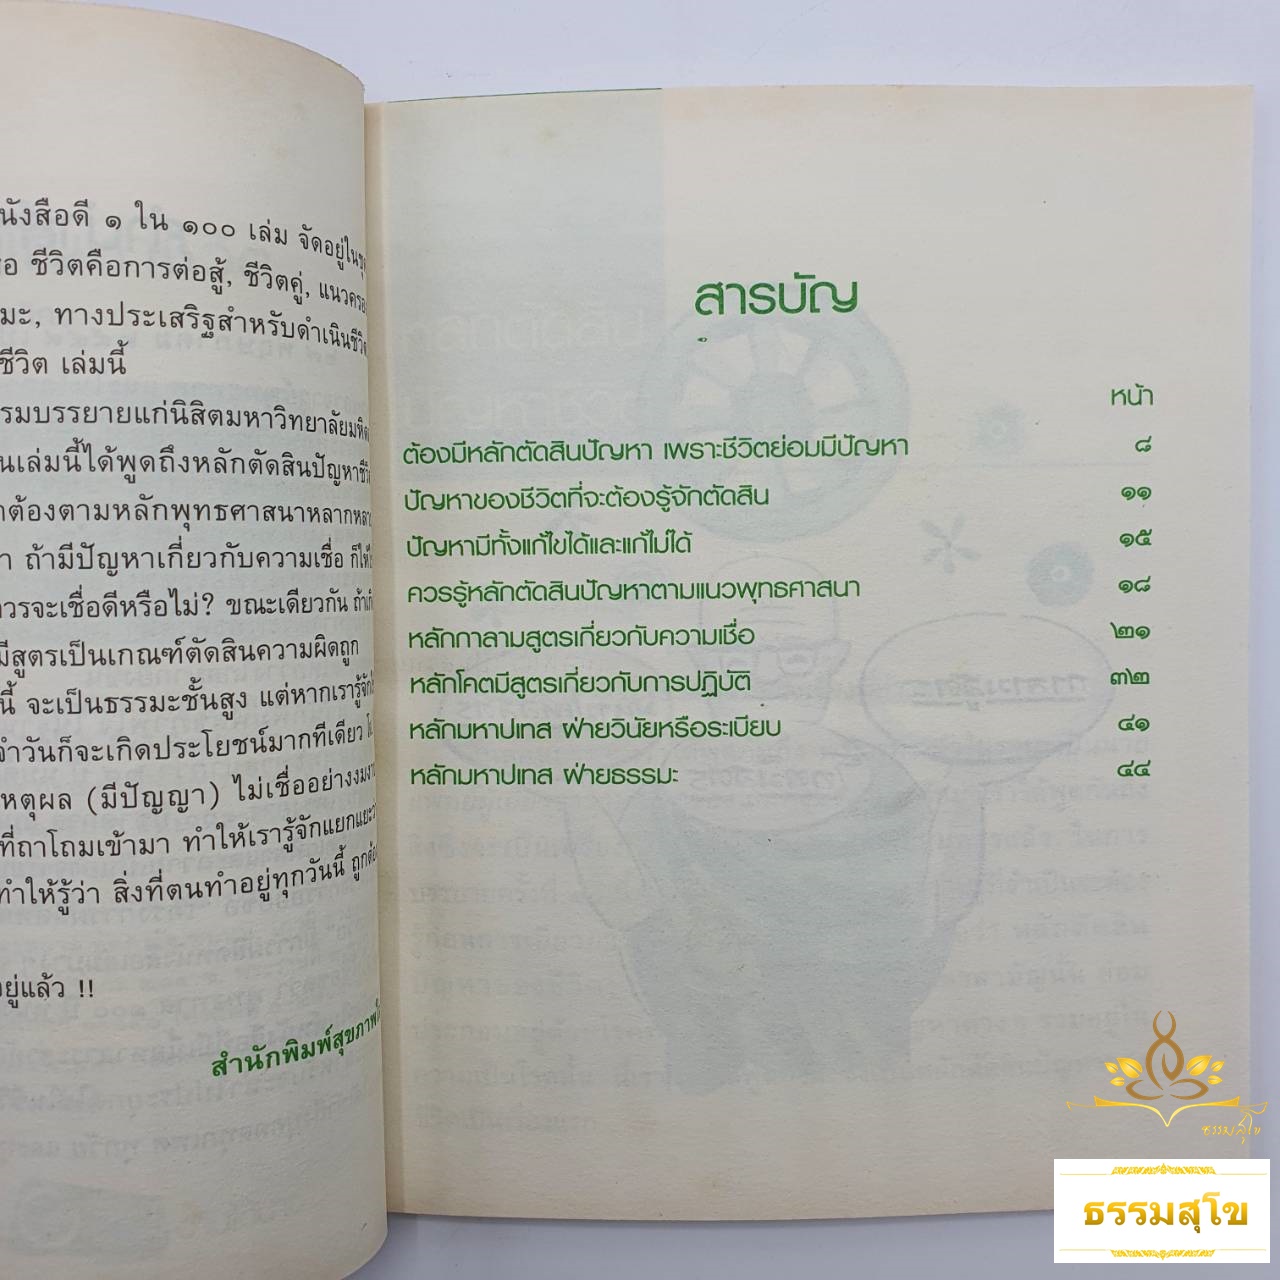 นังสือดี ๑ ใน ๑๐๐ เล่ม จัดอยู่ใน
อ ชีวิตคือการต่อสู้, ชีวิตคู่,
มะ, ทางประเสริฐสำหรับดำเนินชีวิต
ชีวิต เล่มนี้
รมบรรยายแก่นิสิตมหาวิทยาลัย
นเล่มนี้ได้พูดถึงหลักตัดสินปัญหา
าต้องตามหลักพุทธศาสนา
า ถ้ามีปัญหาเกี่ยวกับความเชื่อ ก็ให้
ควรจะเชื่อดีหรือไม่? ขณะเดียวกัน
มีสูตรเป็นเกณฑ์ตัดสินความผิดถูก
นี้ จะเป็นธรรมะชั้นสูง แต่หากเรารู้จัก
จำวันก็จะเกิดประโยชน์มากทีเดียว
หตุผล (มีปัญญา) ไม่เชื่ออย่าง
ที่ถาโถมเข้ามา ทำให้เรารู้จักแยกแยะ
ทำให้รู้ว่า สิ่งที่ตนทำอยู่ทุกวันนี้
อยู่แล้ว !!
สำนักพิมพ์สุขภาพใจ
สารบัญ
หน้า
ต้องมีหลักตัดสินปัญหา เพราะชีวิตย่อมมีปัญหา ๘
ปัญหาของชีวิตที่จะต้องรู้จักตัดสิน ๑๑
ปัญหามีทั้งแก้ไขได้และแก้ไม่ได้ ๑๕
ควรรู้หลักตัดสินปัญหาตามแนวพุทธศาสนา ๑๘
หลักกาลามสูตรเกี่ยวกับความเชื่อ ๒๑
หลักโคตมีสูตรเกี่ยวกับการปฏิบัติ ๓๒
หลักมหาปเทส ฝ่ายวินัยหรือระเบียบ ๔๑
หลักมหาปเทส ฝ่ายธรรมะ ๔๔
ธรรมสุโข
ธรรมสุโข